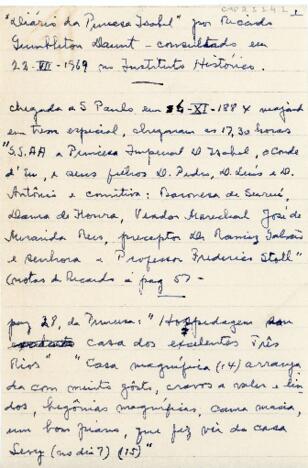 1
"Diário da Princesa Isabel" por Ricardo
Gumbleton Daunt - consultado em
22-VII-1969 no Instituto Histórico.
chegada a S Paulo em 6-XI-1884 viajando
em trem especial, chegaram as 17,30 horas
"S.S.AA a Princesa Imperial D Isabel, o Conde
d'Eu, e seus filhos D. Pedro, D. Luis e D.
António e comitiva: Baronesa de Suruí,
Dama de Honra, Veador Marechal José de
Miranda Reis, preceptor Dr Ramiz Galvão
e senhora e Professor Frederico Stoll"
(notas de Ricardo à pag 5)-
pag 28, da Princesa: "Hospedagem
casa dos excelentes Três
Rios" "Casa magnífica (14) arranja
da com muito gôsto, cravos a valer e lin
dos, begônias magníficas, cama macia,
um bom piano, que fez vir da casa
Levy (no dia 7) (15)"